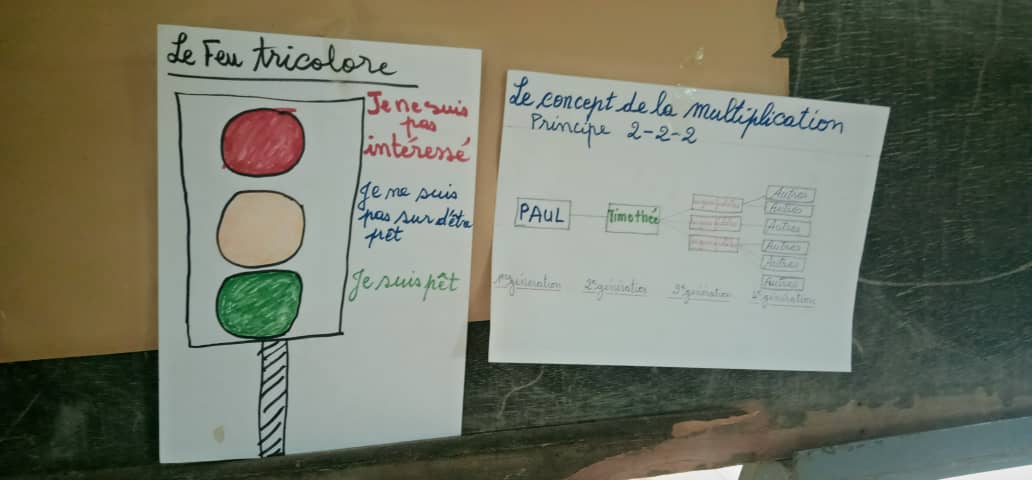 Le Feu tricolore
Je ne suis
pas
intéressé
Je ne suis
pas sur d'être
prêt
Je suis pêt
Le concept de la multiplication
Principe 2-2-2
PAUL
Timothée
Autres
Autres
Autres
Autres
Autres
Autres
1re génération
2e génération
3e génération
génération